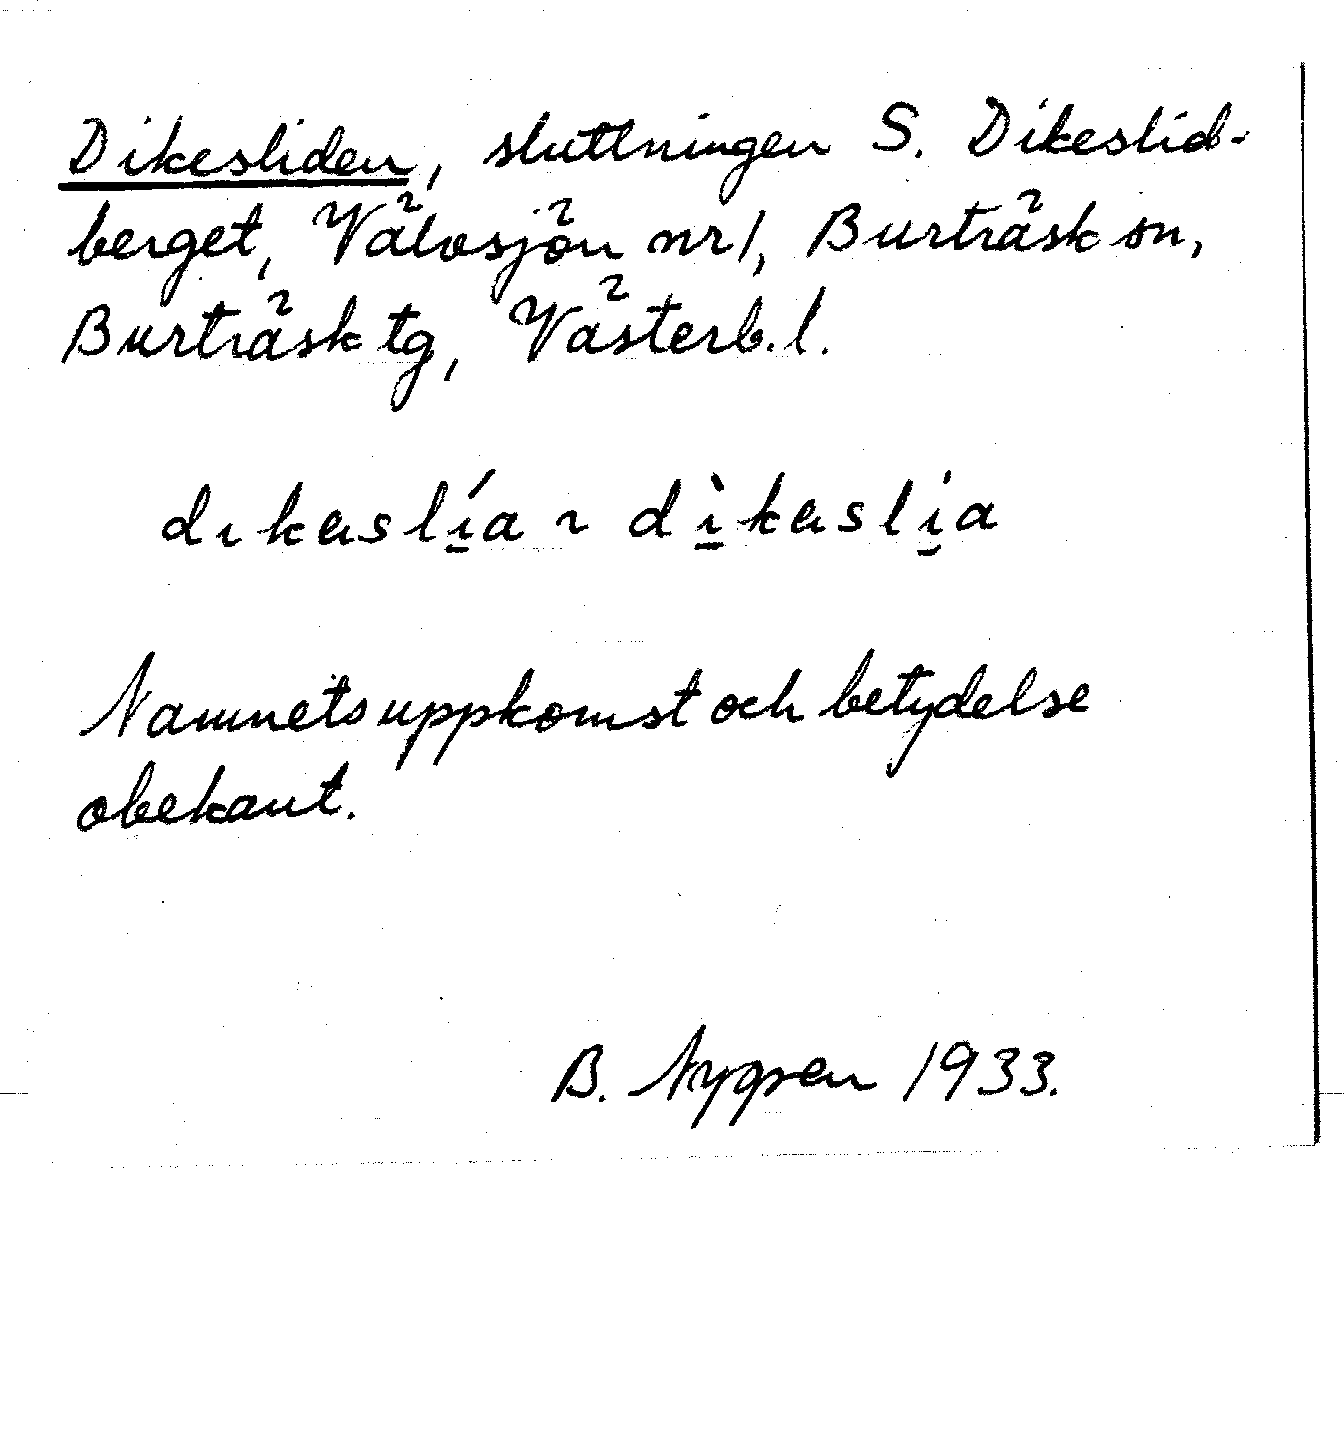 Dikesliden, sluttningen S. Dikeslid-
berget, Välvsjön nr 1, Burträsk sn,
Burträsk tg, Västerb. l.
dıkaslı̱́a ~ dı̱̀kaslı̱́a
Namnets uppkomst och betydelse
obekant.
B. Nygren 1933.